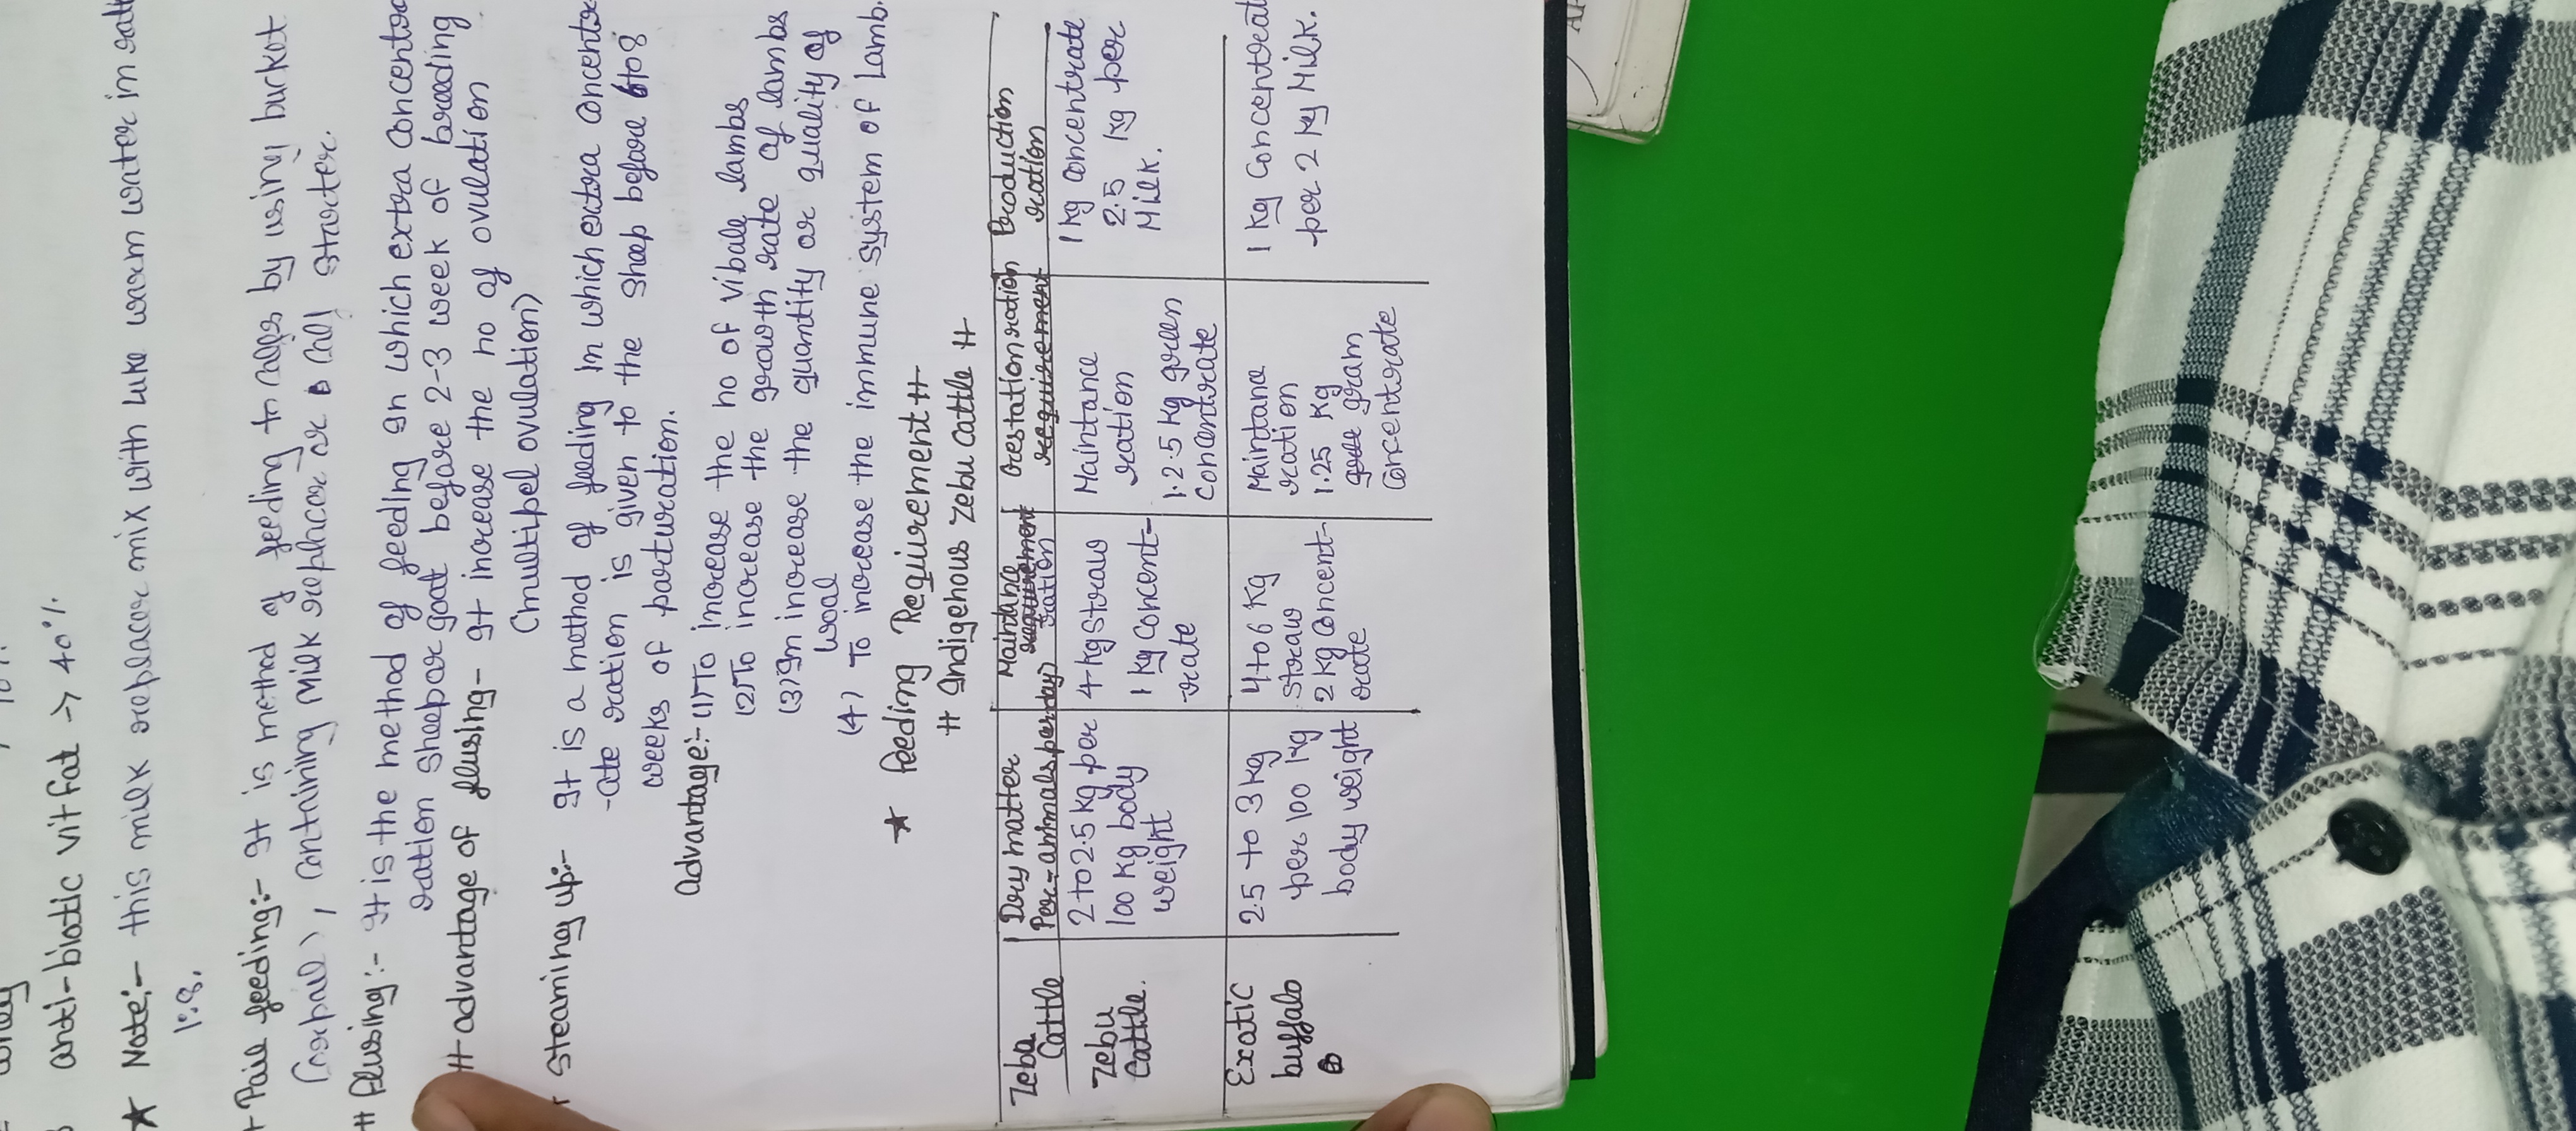 anti-biotic vit fat → 40%
★ Note:- this milk replacer mix with luke warm water in
1:8.
Pail feeding:- It is method of feeding to calfs by using bucket
containing milk replacer or calf starter.
# flusing:- It is the method of feeding in which extra concentra
ration sheep or goat before 2-3 week of breeding
# advantage of flusing- It increase the no of ovulation
(multipel ovulation)
Steaming up:- It is a method of feeding in which extra concentr
-ate ration is given to the sheep before 6 to 8
weeks of parturation.
advantage:- (1) To increase the no of vibale lambs
(2) To increase the growth rate of lambs
(3) In increase the quantity or quality of
wool
(4) To increase the immune system of lamb.
★ feeding Requirement #
# Indigenous zebu cattle #
Zebu Cattle | Dry matter Per-animals per day) | Maintane ration | Gestation ration | Production ration
Zebu Cattle. | 2 to 2.5 kg per 100 kg body weight | 4-kg straw 1 kg Concent-rate | Maintance ration 1.25 kg green Concentrate | 1 kg concentrate 2.5 kg per Milk.
Exatic buffalo | 2.5 to 3 kg per 100 kg body weight | 4 to 6 kg straw 2 kg Concent-rate | Maintane ration 1.25 kg gram Concentrate | 1 kg Concentrat per 2 kg Milk.